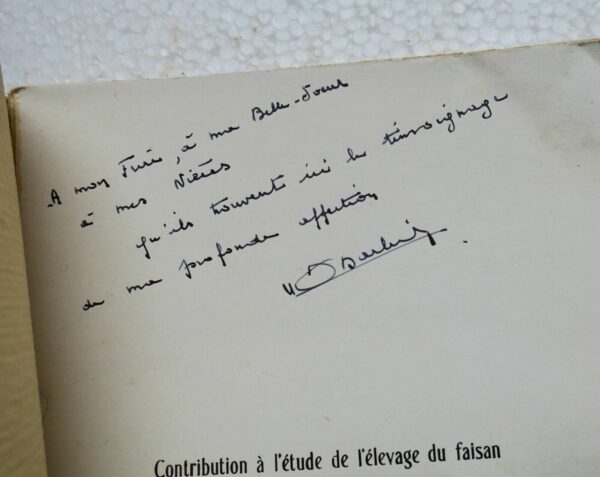 A mon Frère, à ma Belle-Soeur
à mes Nièces
qu'ils trouvent ici le témoignage
de ma profonde affection
Contribution à l'étude de l'élevage du faisan